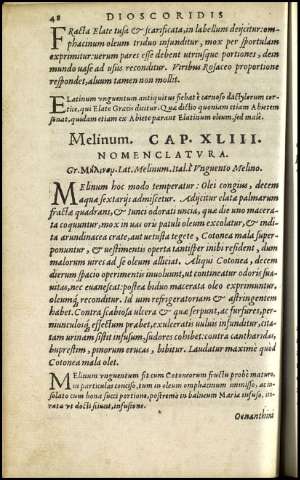 48 DIOSCORIDIS
FRacta Elate tusa & scarificata, in labellum deijcitur: om-
phacinum oleum triduo infunditur, mox per sportulam
exprimitur: verum pares esse debent utriusque portiones, dein
mundo uase ad usus reconditur. Viribus Rosaceo proportione
respondet, aluum tamen non mollit.
ELatinum vnguentum antiquitus fiebat è carnoso dactylorum cor-
tice, qui Elate Græcis dicitur. Qua dictio quoniam etiam Abietem
sonat, quidam etiam ex Abiete parari Elatinum oleum, sed male.
Melinum. CAP. XLIII.
NOMENCLATVRA.
Gr. Μήλινον. Lat. Melinum. Ital. è Vnguento Melino.
MElinum hoc modo temperatur: Olei congius, decem
aquæ sextarijs admiscetur. Adijcitur elatæ palmarum
fractæ quadrans, & iunci odorati uncia, quæ die uno macera-
ta coquuntur, mox in uas oris patuli oleum excolatur, & indi-
ta arundinacea crate, aut uetusta tegete, Cotonea mala super-
ponuntur, & uestimentis operta tantisper inibi resident, dum
malorum uires ad se oleum alliciat. Aliqui Cotonea, decem
dierum spacio operimentis inuoluunt, ut contineatur odoris sua-
uitas, nec euanescat: postea biduo macerata oleo exprimuntur,
oleumq́; reconditur. Id uim refrigeratoriam & astringentem
habet. Contra scabiosa ulcera & quæ serpunt, ac furfures, per-
niunculosq́; effectum præbet, exulceratis uuluis infunditur, cita-
tam urinam sistit infusum, sudores cohibet. contra cantharidas,
buprestim, pinorum erucas, bibitur. Laudatur maxime quod
Cotonea mala olet.
MElinum vnguentum fit cum Cotoneorum fructu probè maturo,
in particulas conciso, tum in oleum omphacinum immisso, ac in-
solato cum bona succi portione, postremò in balneum Mariæ infuso,
rata vt docti sciunt, infusione.
Oenanthini